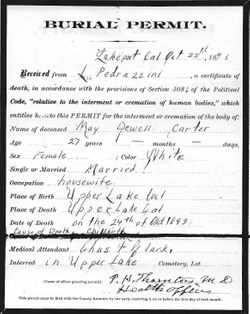 BURIAL PERMIT.
Lakeport Cal Oct 22st, 189
Received from L Pedrazzini, a certificate of
death, in accordance with the provisions of Section 308½ of the Political
Code, "relative to the interment or cremation of human bodies," which
entitles h to this PERMIT for the interment or cremation of the body of:
Name of deceased May Dewell Carter
Age 27 years — months — days,
Sex Female. Color White
Single or Married Married
Occupation housewife
Place of Birth Upper Lake Cal
Place of Death Upper Lake Cal
Date of Death on the of Oct 1893
Cause of Death Childbirth
Medical Attendant Chas
Interred in Upper Lake Cemetery, Lot
Name of officer granting permit, Thornton M D
Health officer
This permit must be filed with the County Recorder by the party receiving it on or before the first day of each month.